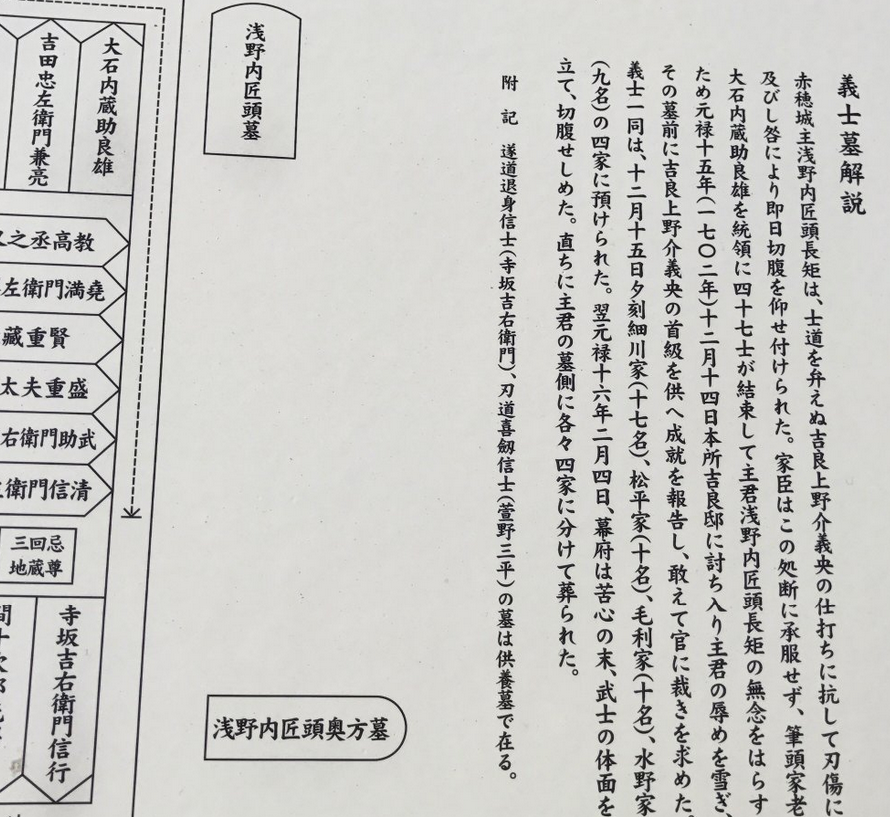 義士墓解説
赤穂城主浅野内匠頭長矩は、士道を弁えぬ吉良上野介義央の仕打ちに抗して刃傷に
及びし咎により即日切腹を仰せ付けられた。家臣はこの処断に承服せず、筆頭家老
大石内蔵助良雄を統領に四十七士が結束して主君浅野内匠頭長矩の無念をはらす
ため元禄十五年(一七〇二年)十二月十四日本所吉良邸に討ち入り主君の辱めを雪ぎ、
その墓前に吉良上野介義央の首級を供へ成就を報告し、敢えて官に裁きを求めた。
義士一同は、十二月十五日夕刻細川家(十七名)、松平家(十名)、毛利家(十名)、水野家
(九名)の四家に預けられた。翌元禄十六年二月四日、幕府は苦心の末、武士の体面を
立て、切腹せしめた。直ちに主君の墓側に各々四家に分けて葬られた。
附記 遂道退身信士(寺坂吉右衛門)、刃道喜劔信士(萱野三平)の墓は供養墓で在る。
浅野内匠頭墓
浅野内匠頭奥方墓
大石内蔵助良雄
吉田忠左衛門兼亮
之丞高教
左衛門満堯
藏重賢
太夫重盛
右衛門助武
衛門信清
三回忌
地蔵尊
寺坂吉右衛門信行
間十次郎